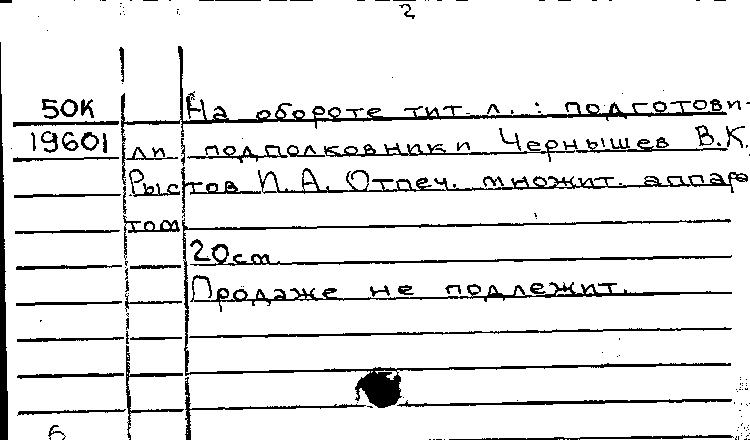 2
50К На обороте тит. л. : подготови-
19601 ли подполковники Чернышев В.К.
Рыстов И. А. Отпеч. множит. аппара
том
20 см
Продаже не подлежит.
6